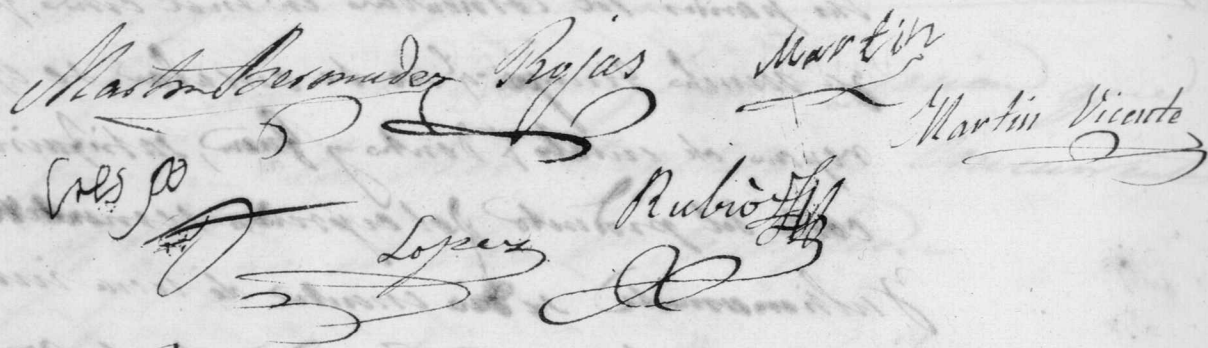 Martin Bermudez Rojas Martin
Martin Vicente
Crespo
Rubio
Lopez